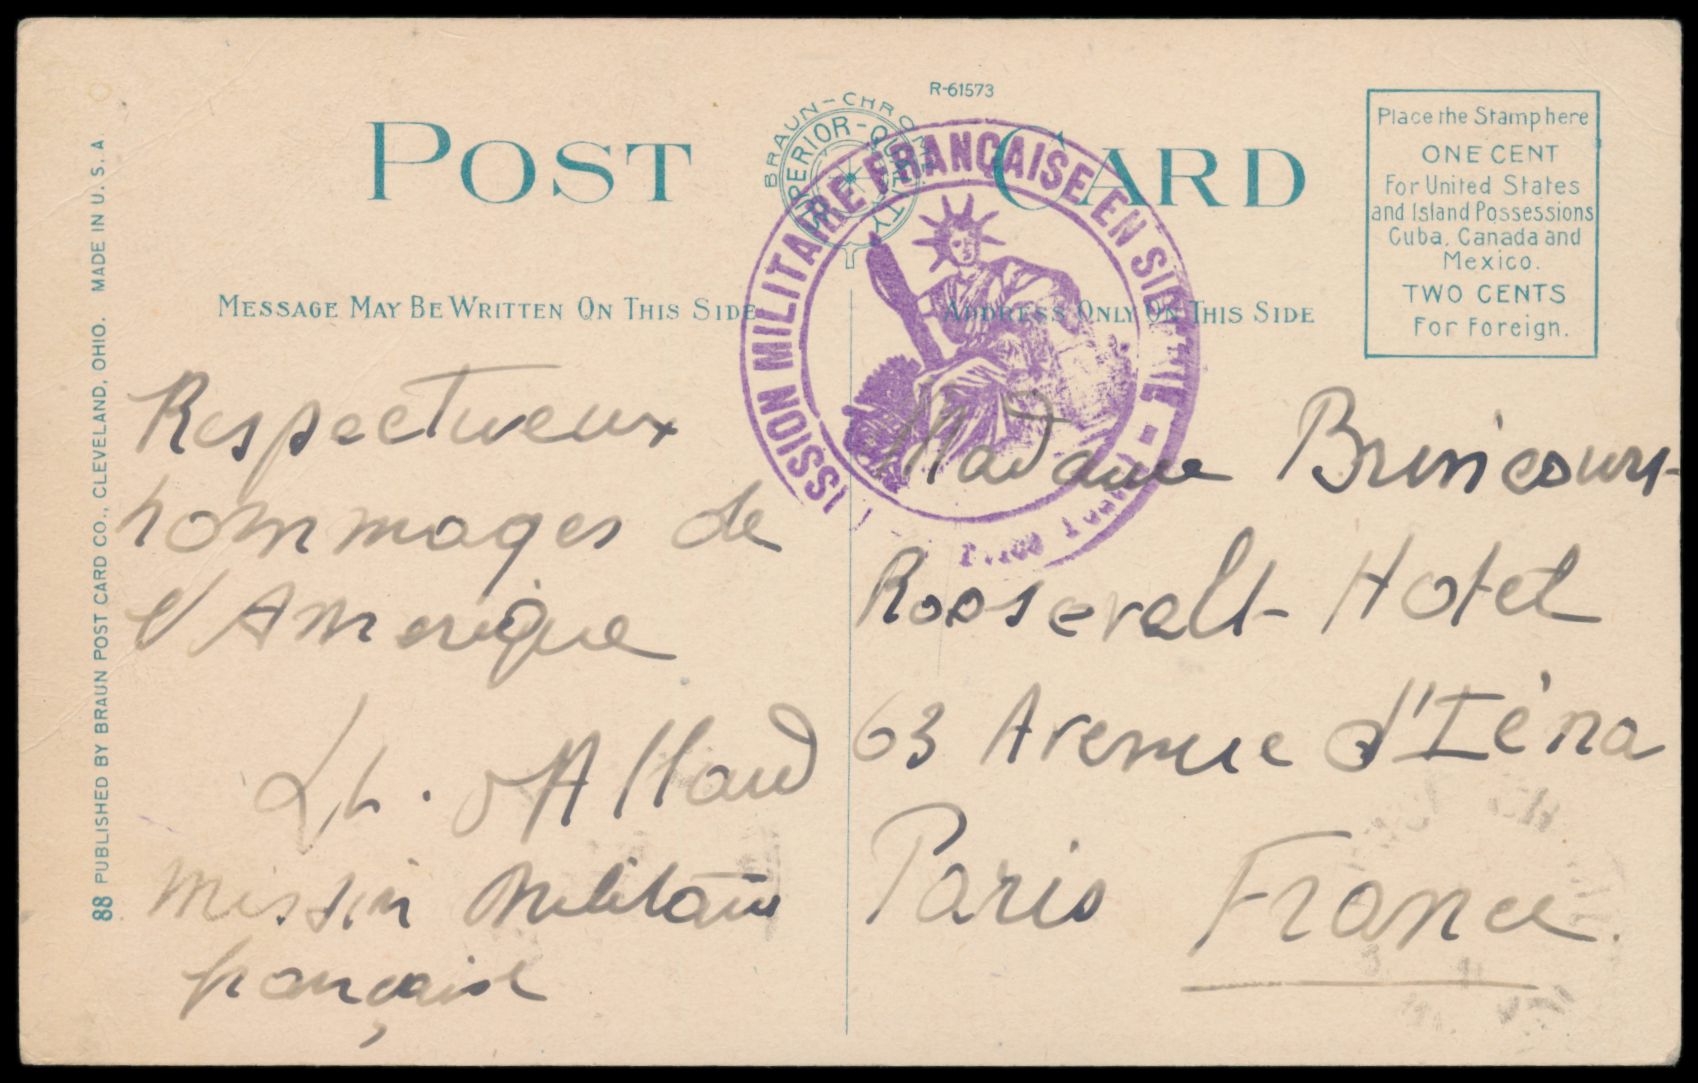 R-61573
POST CARD
BRAUN-CHRO
SUPERIOR-QUALITY
MISSION MILITAIRE FRANÇAISE EN SIBÉRIE
Place the Stamp here
ONE CENT
For United States
and Island Possessions
Cuba, Canada and
Mexico.
TWO CENTS
For Foreign.
MESSAGE MAY BE WRITTEN ON THIS SIDE
ADDRESS ONLY ON THIS SIDE
88 PUBLISHED BY BRAUN POST CARD CO., CLEVELAND, OHIO. MADE IN U.S.A.
Respectueux
hommages de
l'Amerique
Lt. d'Allard
Mission Militaire
française
Madame Brincourt
Roosevelt Hotel
63 Avenue d'Iéna
Paris France.